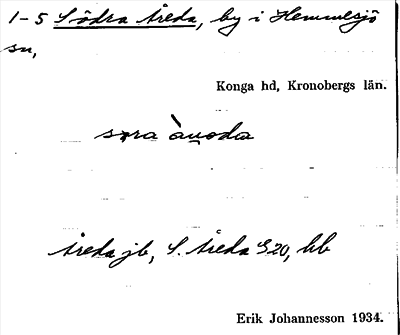 1-5 Södra Åreda, by i Hemmesjö
sn,
Konga hd, Kronobergs län.
Åreda jb, S. Åreda G20, bb
Erik Johannesson 1934.